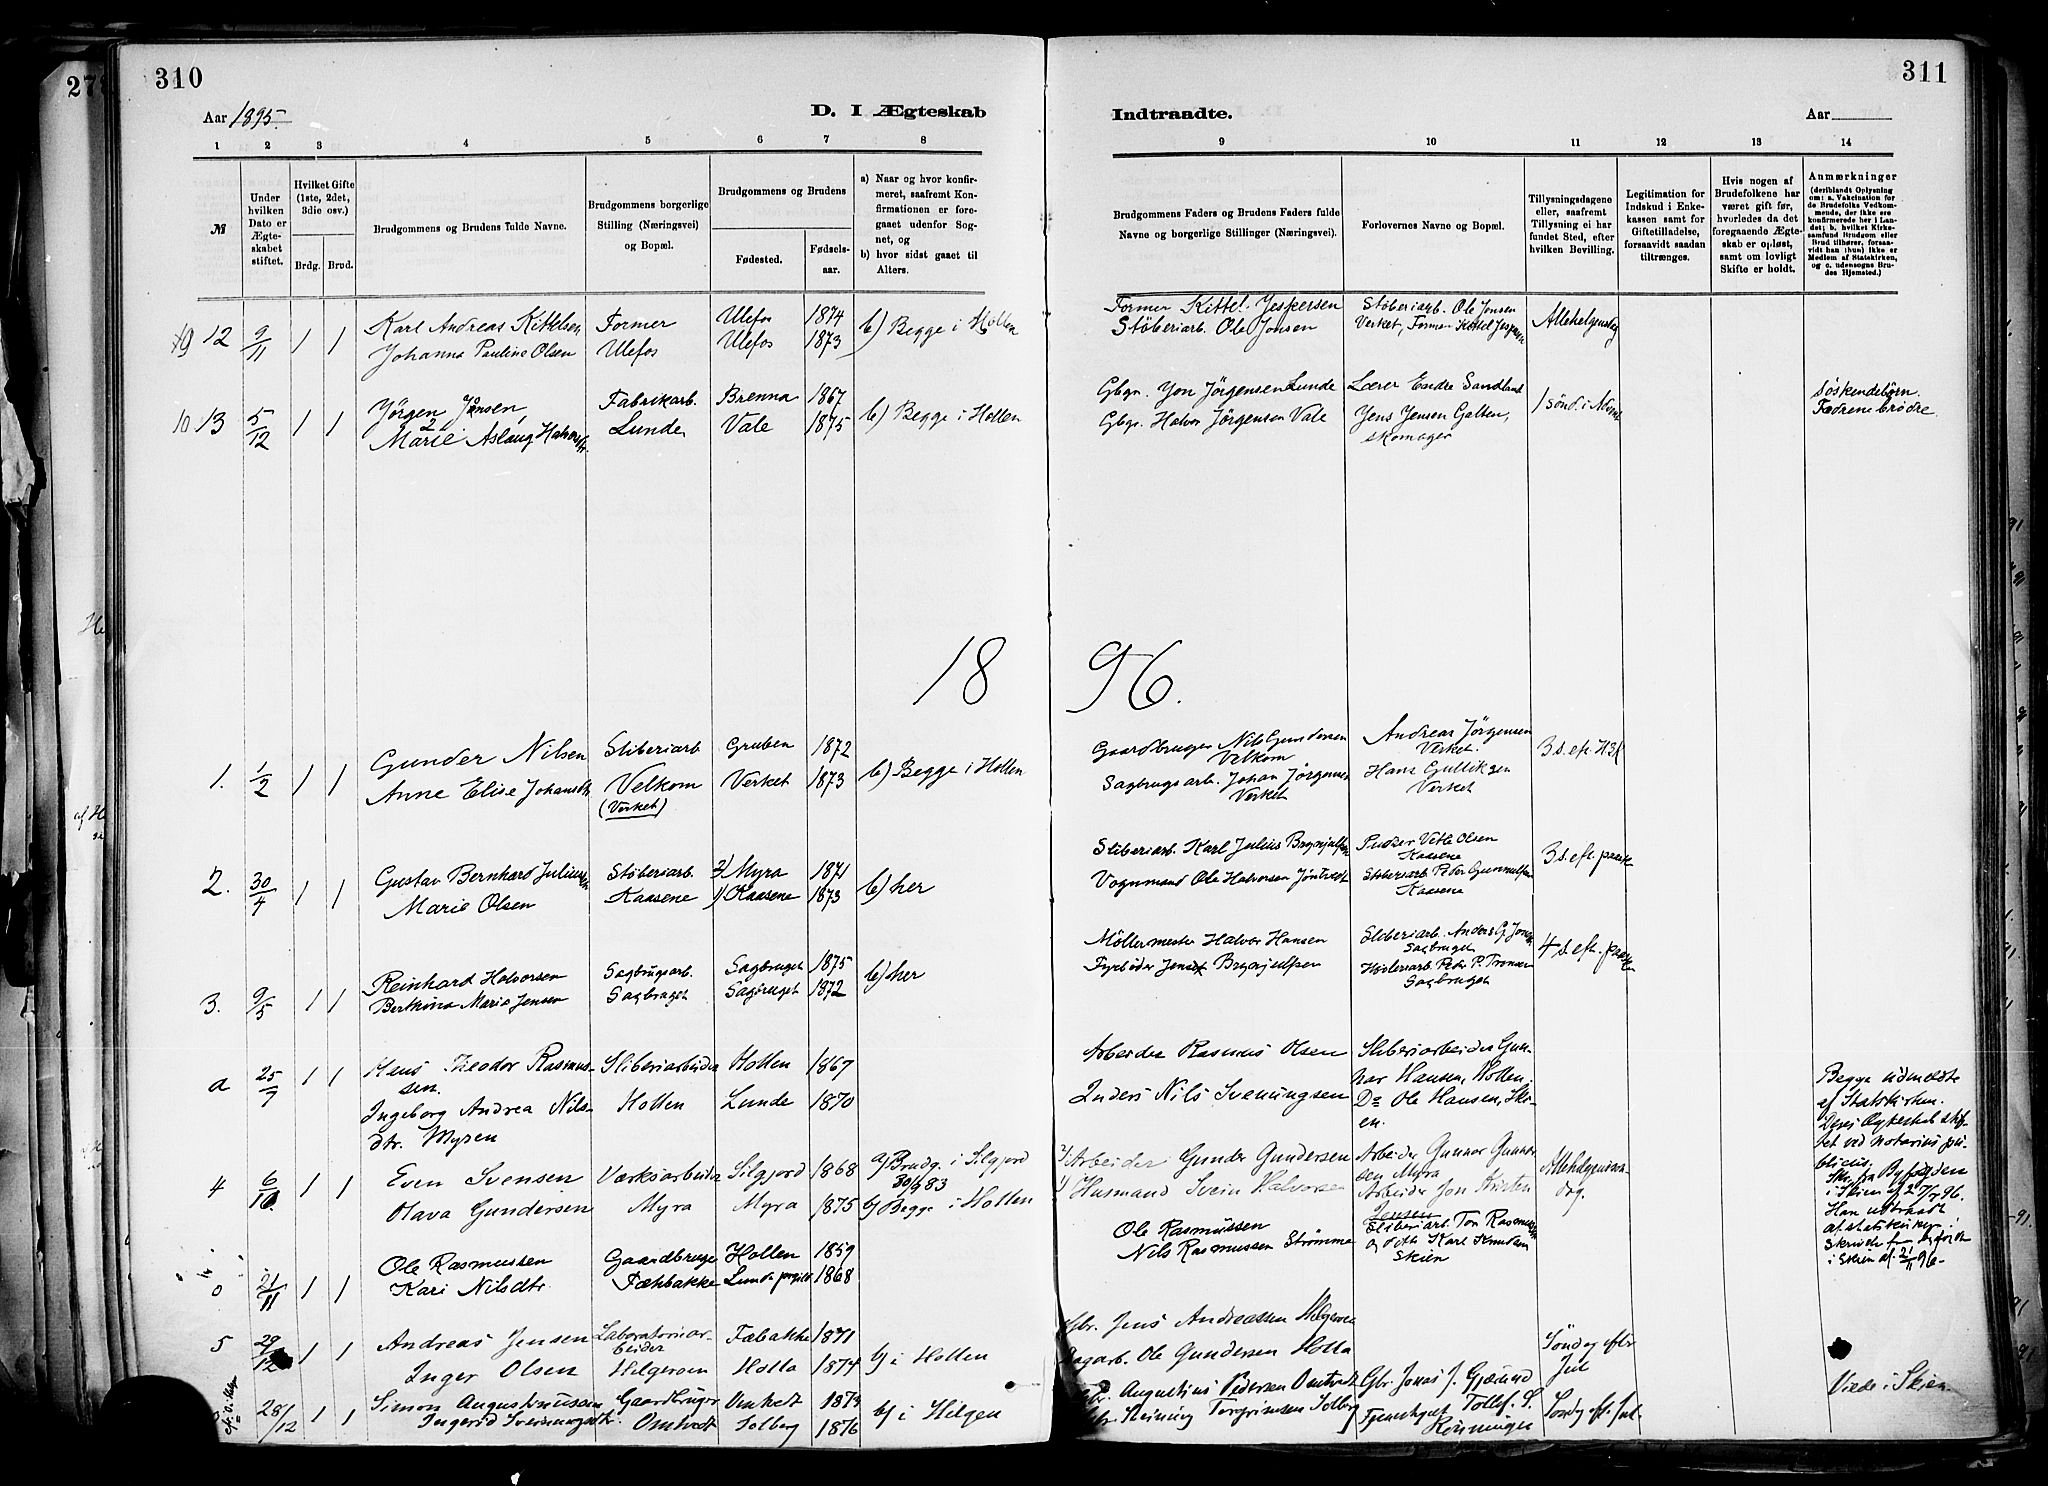 310
Aar 1895.
D. I Ægteskab
1 2 3 4 5 6 7 8
№
Under hvilken Dato er Ægteskabet stiftet.
Hvilket Gifte (1ste, 2det, 3die osv.)
Brdg. Brud.
Brudgommens og Brudens fulde Navne.
Brudgommens borgerlige Stilling (Næringsvei) og Bopæl.
Brudgommens og Brudens
Fødested. Fødselsaar.
a) Naar og hvor konfirmeret, saafremt Konfirmationen er foregaaet udenfor Sognet, og
b) hvor sidst gaaet til Alters.
12 9/11 1 1 Karl Andreas Kittelsen Former Ulefos 1874 b) Begge i Hollen
Johanna Pauline Olsen Ulefos Ulefos 1873
10 13 5/12 1 1 Jörgen Jensen Fabrikarb. Brenna 1867 b) Begge i Hollen
Marie Aslaug Lunde Vale 1875
18
1. 1/2 1 1 Gunder Nilsen Sliberiarb Gruben 1872 b) Begge i Hollen
Anne Elise Johansdtr Velkom Verket 1873
(Verket)
2. 30/4 1 1 Gustav Bernhard Juliussen Støberiarb. 2) Myra 1871 b) her
Marie Olsen Kaasene 1) Kaasene 1873
3. 9/5 1 1 Reinhard Halvorsen Sagbrugsarb. Sagbruget 1875 b) her
Berthine Marie Jensen Sagbruget Sagbruget 1872
a 25/7 1 1 Jens Teodor Rasmussen Sliberiarbeider Hollen 1867
Ingeborg Andrea Nilsdtr. Myren Hollen Lunde 1870
4 6/10 1 1 Even Svensen Værksarbeider Silgjord 1868 a) Brudg. i Silgjord 83
Olava Gundersen Myra Myra 1875 b) Begge i Hollen
21/11 1 1 Ole Rasmussen Gaardbruger Hollen 1859
Kari Nilsdtr Fæhbakke Lunde 1868
5 29/12 1 1 Andreas Jensen Laboratoriearbeider Fæbakke 1871
Inger Olsen Helgeroen Holla 1874 b) i Hollen
28/12 1 1 Simon Augustinussen Gaardbruger Omtvedt 1874 b) i Helgen
Ingerid Omtvedt Solberg 1876
311
Indtraadte.
Aar
9 10 11 12 13 14
Brudgommens Faders og Brudens Faders fulde Navne og borgerlige Stillinger (Næringsvei).
Forlovernes Navne og Bopæl.
Tillysningsdagene eller, saafremt Tillysning ei har fundet Sted, efter hvilken Bevilling.
Legitimation for Indskud i Enkekassen samt for Giftetilladelse, forsaavidt saadan tiltrænges.
Hvis nogen af Brudefolkene har været gift før, hvorledes da det foregaaende Ægteskab er opløst, samt om lovligt Skifte er holdt.
Anmærkninger
(deriblandt Oplysning om: a. Vakcination for de Brudefolks Vedkommende, der ikke ere konfirmerede her i Landet; b. hvilket Kirkesamfund Brudgom eller Brud tilhører, forsaavidt han (hun) ikke er Medlem af Statskirken, og c. udensogns Brudes Hjemsted.)
Former Kittel Jespersen Støberiarb. Ole Jonsen Allehelgensdag
Støberiarb. Ole Jonsen Verket, Former Kittel Jespersen
Gbgr. Jon Jörgensen Lunde Lærer Endre Sandland 1 sönd. i Advent Söskendebörn.
Gbgr. Halvor Jörgensen Vale Jens Jensen Galten, Fædrene brödre.
skomager
96.
Gaardbruger Nils Gundersen Andreas Jörgensen 3 s. eft. H3k
Velkom Verket.
Sagbrugsarb. Johan Jørgensen Hans Gulliksen
Verket Verket
Sliberiarb. Karl Julius Brynjulfsen Pudser Vetle Olsen 3 s. eft. paaske
Kaasene
Vognmand Ole Halvorsen Jöntvedt Støberiarb Peder Gunnulfsen
Kaasene
Møllermester Halvor Hansen Sliberiarb. Anders G. 4 s. eft. paaske
Sagbruget
Fyrbøder Jens Brynjulfsen Høvleriarb. Peder P.
Sagbruget
Arbeider Rasmus Olsen Sliberiarbeider Gunnar Hansen, Hollen.
Inderst Nils Sveinungsen Do Ole Hansen, Skien.
Begge udmeldte
af Statskirken.
Deres Ægteskab stiftet
ved notarius publicus,
i Skien af 27/7 96.
Han udtraadt
af statskirken
i Skien af 21/11 96.
2) Arbeider Gunder Gundersen Arbeider Gunnar Myra
1) Husmand Svein Halvorsen Arbeider Jon Kristen Jensen
Ole Rasmussen Sliberiarb. Tor Rasmussen
Nils Rasmussen Strömme og Karl Knudsen
Skien
Gbr. Jens Andreassen Søndag efter
Sagarb. Ole Gundersen Holla Jul
Augustius Pedersen Omtvedt Gbr. Jonas J. Viede i Skien
Solberg Tollef S. Rönningen Søndag eft. Jul